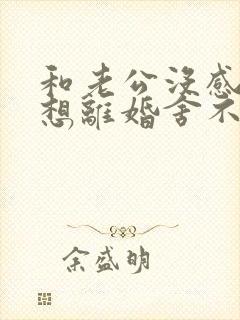 和老公没感
想離婚舍不
余盛明